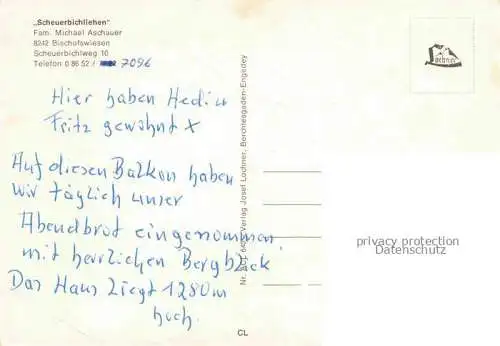 „Scheuerbichllehen"
Fam. Michael Aschauer
8242 Bischofswiesen
Scheuerbichlweg 10
Telefon 0 86 52 / 7096
Hier haben Hedi u
Fritz gewohnt x
Auf diesen Balkon haben
wir täglich unser
Abendbrot eingenommen,
mit herrlichen Bergblick
Das Haus liegt 1280m
hoch.
Verlag Josef Lochner, Berchtesgaden-Engedey
Lochner
privacy protection
Datenschutz
CL